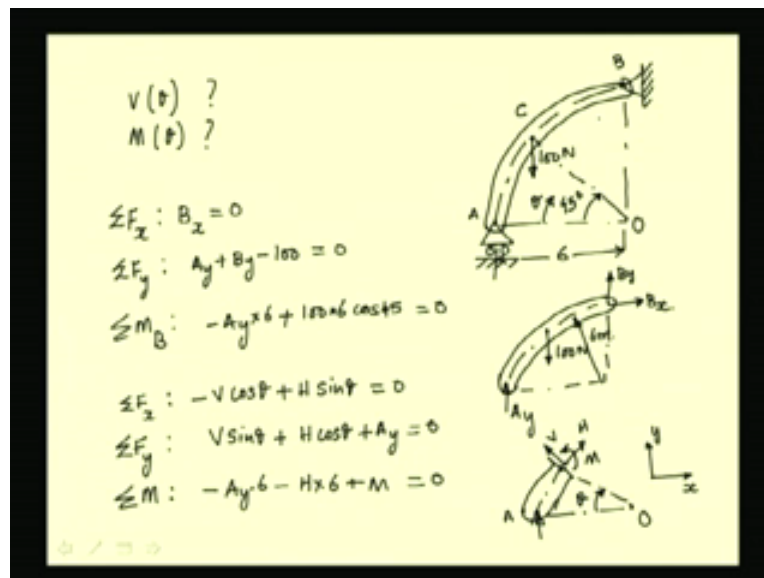 V(θ) ?
M(θ) ?
ΣF_x : B_x = 0
ΣF_y : A_y + B_y - 100 = 0
Σm_B : -A_y×6 + 100×6 cos45 = 0
ΣF_x : -V cosθ + H sinθ = 0
ΣF_y : V sinθ + H cosθ + A_y = 0
Σm : -A_y·6 - H×6 + M = 0
B
C
100N
A
θ
45°
O
6
By
Bx
100N
6m
Ay
V
H
M
A
θ
O
y
x